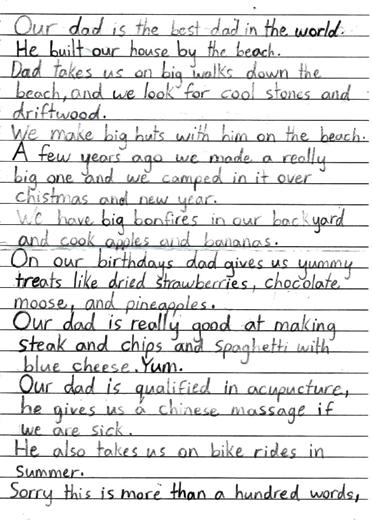 Our dad is the best dad in the world.
He built our house by the beach.
Dad takes us on big walks down the
beach, and we look for cool stones and
driftwood.
We make big huts with him on the beach.
A few years ago we made a really
big one and we camped in it over
chistmas and new year.
We have big bonfires in our backyard
and cook apples and bananas.
On our birthdays dad gives us yummy
treats like dried strawberries, chocolate
moose, and pineapples.
Our dad is really good at making
steak and chips and spaghetti with
blue cheese. Yum.
Our dad is qualified in acupucture,
he gives us a chinese massage if
we are sick.
He also takes us on bike rides in
summer.
Sorry this is more than a hundred words,